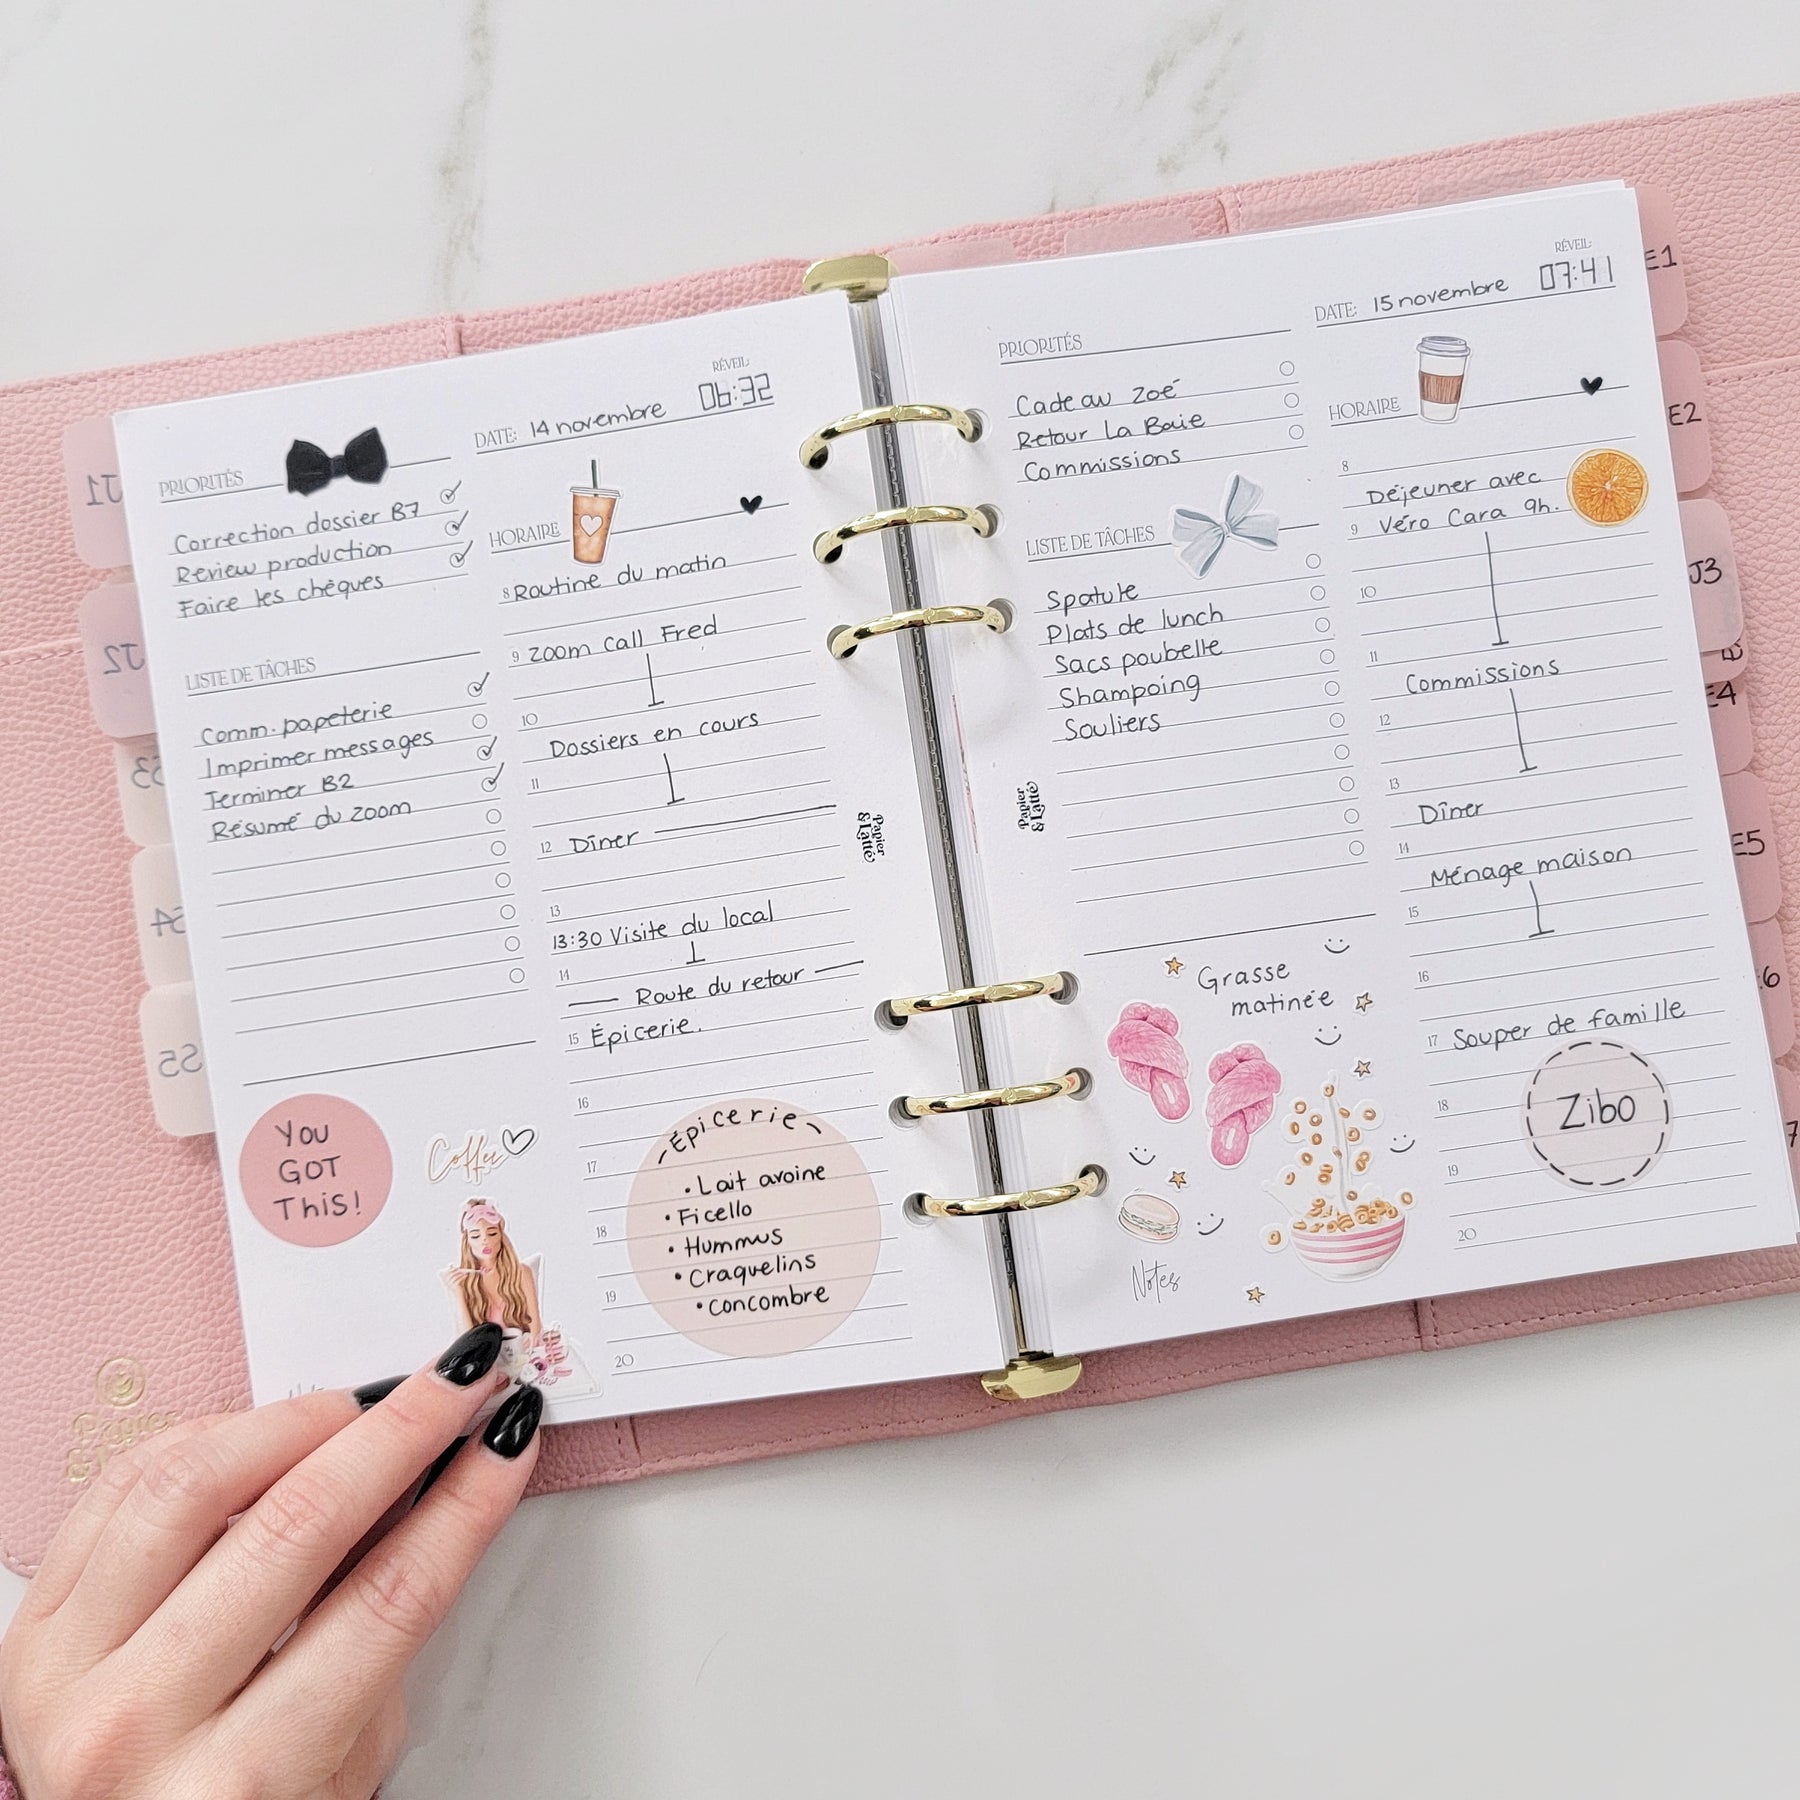 RÉVEIL:
06:32
DATE: 14 novembre
PRIORITÉS
Correction dossier B7
Review production
Faire les chèques
LISTE DE TÂCHES
Comm. papeterie
Imprimer messages
Terminer B2
Résumé du zoom
HORAIRE
8 Routine du matin
9 Zoom call Fred
10
Dossiers en cours
11
12 Dîner
13
13:30 Visite du local
14
Route du retour
15 Épicerie.
16
17
18
19
20
Épicerie
• Lait avoine
• Ficello
• Hummus
• Craquelins
• Concombre
YOU
GOT
THIS!
Coffee
Papier
& Latté
RÉVEIL:
07:41
DATE: 15 novembre
PRIORITÉS
Cadeau Zoé
Retour La Baie
Commissions
LISTE DE TÂCHES
Spatule
Plats de lunch
Sacs poubelle
Shampoing
Souliers
HORAIRE
8
Déjeuner avec
9 Véro Cara 9h.
10
11
Commissions
12
13
Dîner
14
Ménage maison
15
16
17 Souper de famille
18
19
20
Zibo
Grasse
matinée
Notes
Papier
& Latté
J1
J2
S3
S5
E1
E2
J3
E4
E5
6
7
Papier